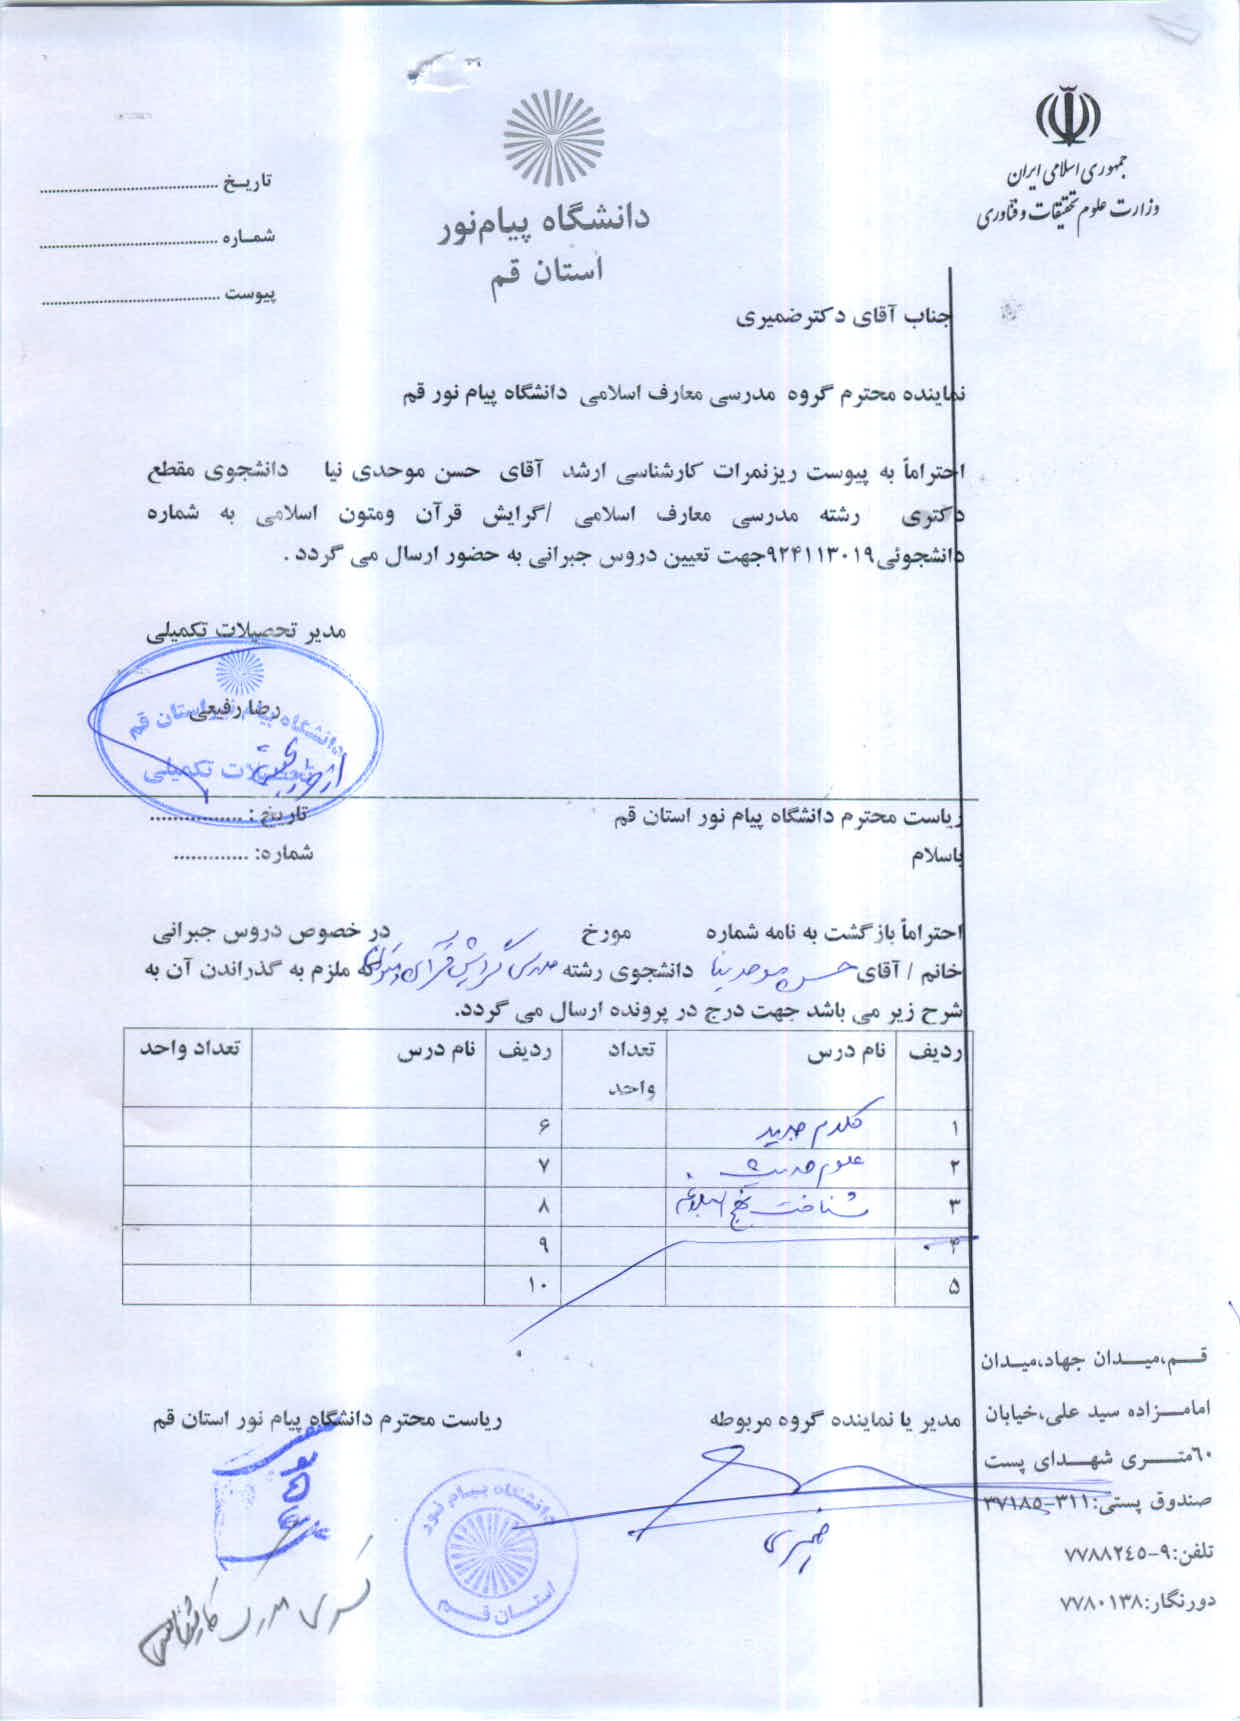 جمهوری اسلامی ایران
وزارت علوم تحقیقات و فناوری
دانشگاه پیام‌نور
استان قم
تاریـخ ........................................
شمـاره ........................................
پیوست ........................................
جناب آقای دکترضمیری
نماینده محترم گروه مدرسی معارف اسلامی دانشگاه پیام نور قم
احتراماً به پیوست ریزنمرات کارشناسی ارشد آقای حسن موحدی نیا دانشجوی مقطع
دکتری رشته مدرسی معارف اسلامی /گرایش قرآن ومتون اسلامی به شماره
دانشجوئی۹۲۴۱۱۳۰۱۹جهت تعیین دروس جبرانی به حضور ارسال می گردد .
مدیر تحصیلات تکمیلی
رضا رفیعی
دانشگاه پیام نور استان قم
تحصیلات تکمیلی
ریاست محترم دانشگاه پیام نور استان قم
تاریخ : ................
باسلام
شماره: .............
احتراماً بازگشت به نامه شماره مورخ در خصوص دروس جبرانی
خانم / آقای حسن موحدی نیا دانشجوی رشته مدرسی گرایش قرآن و متون که ملزم به گذراندن آن به
شرح زیر می باشد جهت درج در پرونده ارسال می گردد.
ردیف نام درس تعداد واحد ردیف نام درس تعداد واحد
۱ کلام جدید ۶
۲ علوم حدیث ۷
۳ شناخت نهج البلاغه ۸
۴ ۹
۵ ۱۰
مدیر یا نماینده گروه مربوطه
ریاست محترم دانشگاه پیام نور استان قم
ضمیری
دانشگاه پیام نور
استـان قـم
قـــم،میـــدان جهاد،میـدان
امامـــزاده سید علی،خیابان
۶۰متـــری شهـــدای پست
صندوق پستی:۳۱۱-۳۷۱۸۵
تلفن:۹-۷۷۸۸۲۴۵
دورنگار:۷۷۸۰۱۳۸